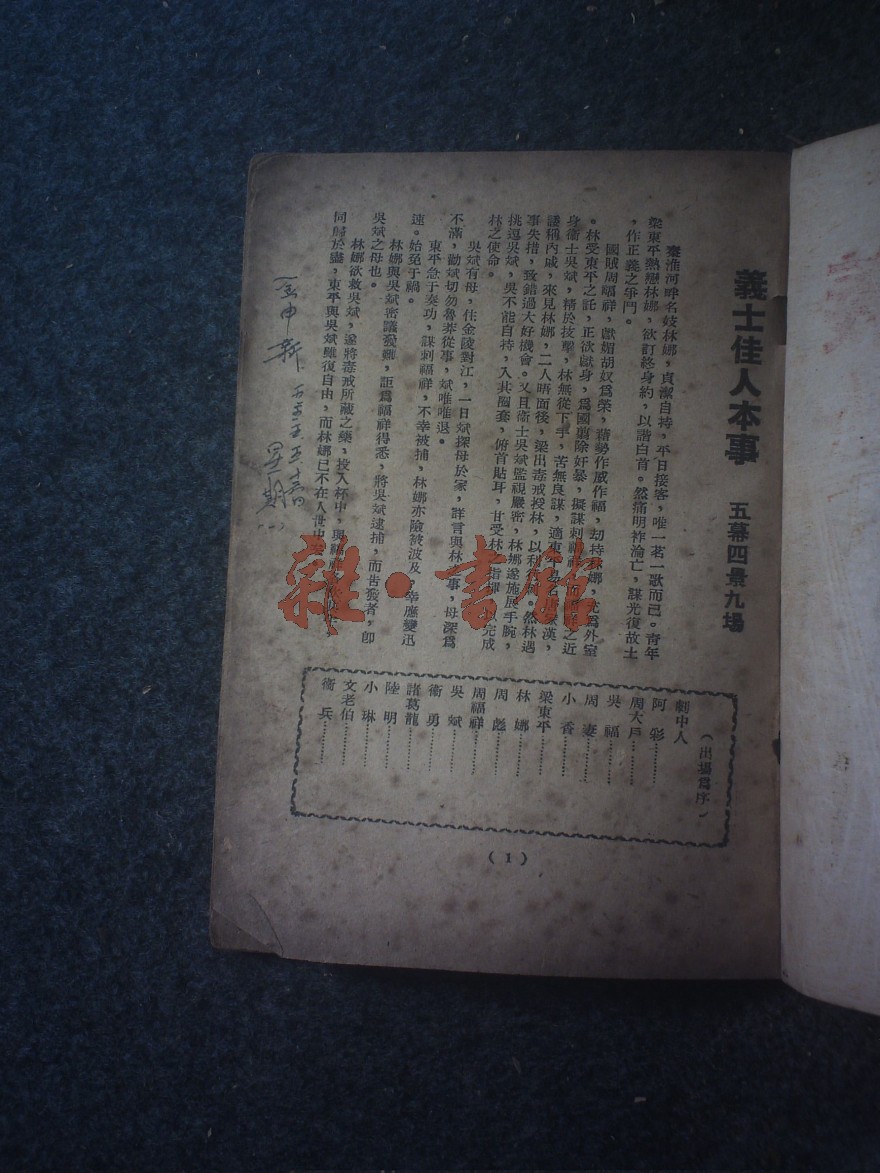 義士佳人本事 五幕四景九場
秦淮河畔名妓林娜，貞潔自持，平日接客，唯一茗一歌而已。青年
梁東平熱戀林娜，欲訂終身約，以諧白首。然痛明祚淪亡，謀光復故土
，作正義之爭鬥。
國賊周福祥，獻媚胡奴爲榮，藉勢作威作福，刧持林娜，充爲外室
。林受東平之託，正欲獻身，爲國剪除奸暴，擬謀刺福祥，之近
身衞士吳斌，精於技擊，林無從下手，苦無良謀，適東平易名，漢，
謊稱內戚，來見林娜，二人晤面後，梁出毒戒授林，以利。然林遇
事失措，致錯過大好機會。又且衞士吳斌監視嚴密，林娜遂施展手腕，
挑逗吳斌，吳不能自持，入其圈套，俯首貼耳，甘受林指揮，以完成
林之使命。
吳斌有母，住金陵對江，一日斌探母於家，詳言與林事，母深爲
不滿，勸斌切勿魯莽從事，斌唯唯退。
東平急于奏功，謀刺福祥，不幸被捕，林娜亦險被波及，幸應變迅
速。始免于禍。
林娜與吳斌密議發難，詎爲福祥得悉，將吳斌逮捕，而告發者，卽
吳斌之母也。
林娜欲救吳斌，遂將毒戒所藏之藥，投入杯中，與福祥
同歸於盡，東平與吳斌雖復自由，而林娜已不在人世中
星期（一）
劇中人（出場爲序）
阿彩………
周大戶………
吳福………
周妻………
小香………
梁東平………
林娜………
周彪………
周福祥………
吳斌………
衞勇………
諸葛龍………
陸明………
小琳………
文老伯………
衞兵………
（1）
雜·書館